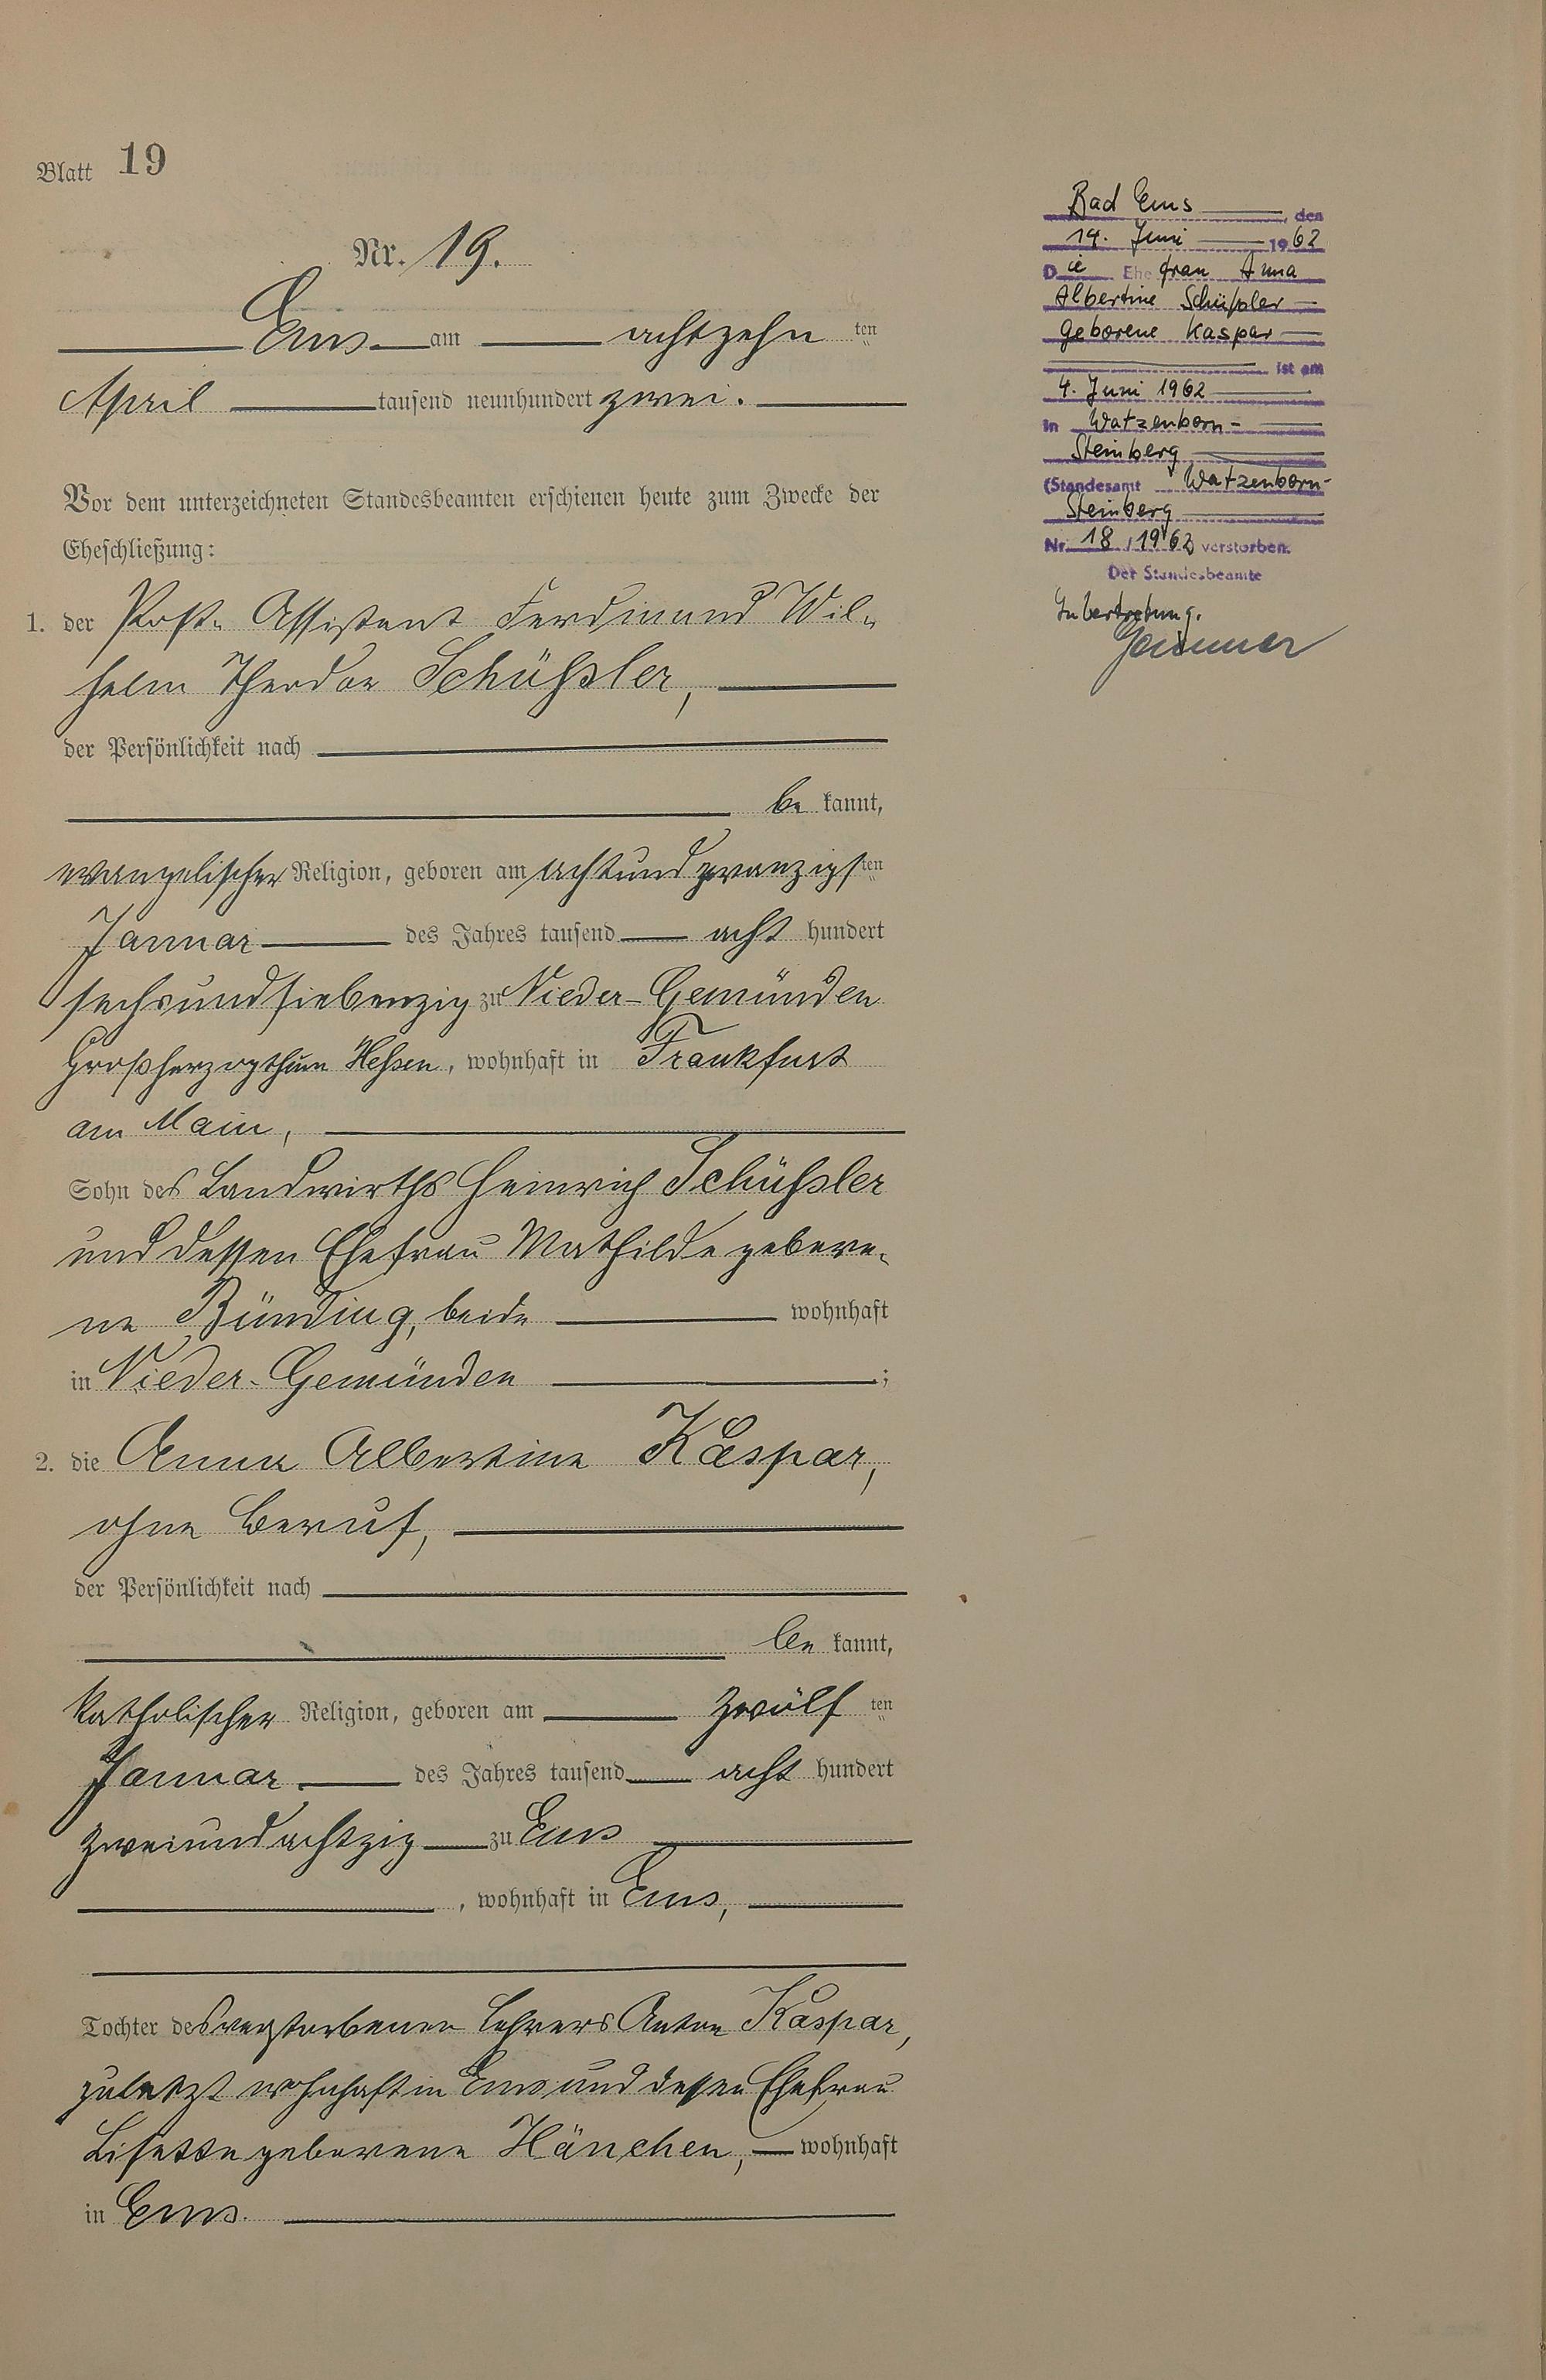 Blatt 19
Nr. 19.
Ems am achtzehn ten
April tausend neunhundert zwei.
Vor dem unterzeichneten Standesbeamten erschienen heute zum Zwecke der
Eheschließung:
1. der Post-Assistent Ferdinand Wil-
helm Theodor Schüßler,
der Persönlichkeit nach
be kannt,
evangelischer Religion, geboren am achtundzwanzigsten
Januar des Jahres tausend acht hundert
sechsundsiebenzig zu Nieder-Gemünden
Großherzogthum Hessen, wohnhaft in Frankfurt
am Main,
Sohn des Landwirths Heinrich Schüßler
und dessen Ehefrau Mathilde gebore-
ne Bünding, beide wohnhaft
in Nieder-Gemünden ;
2. die Anna Albertine Kaspar,
ohne Beruf,
der Persönlichkeit nach
be kannt,
katholischer Religion, geboren am zwölf ten
Januar des Jahres tausend acht hundert
zweiundachtzig zu Ems
, wohnhaft in Ems,
Tochter des verstorbenen Lehrers Anton Kaspar,
zuletzt wohnhaft in Ems und dessen Ehefrau
Lisette geborene Hänchen, wohnhaft
in Ems.
Bad Ems , den
14. Juni 1962
Die Ehefrau Anna
Albertine Schüßler
geborene Kaspar
ist am
4. Juni 1962
in Watzenborn-
Steinberg
(Standesamt Watzenborn-
Steinberg
Nr. 18/1962) verstorben.
Der Standesbeamte
In Vertretung.